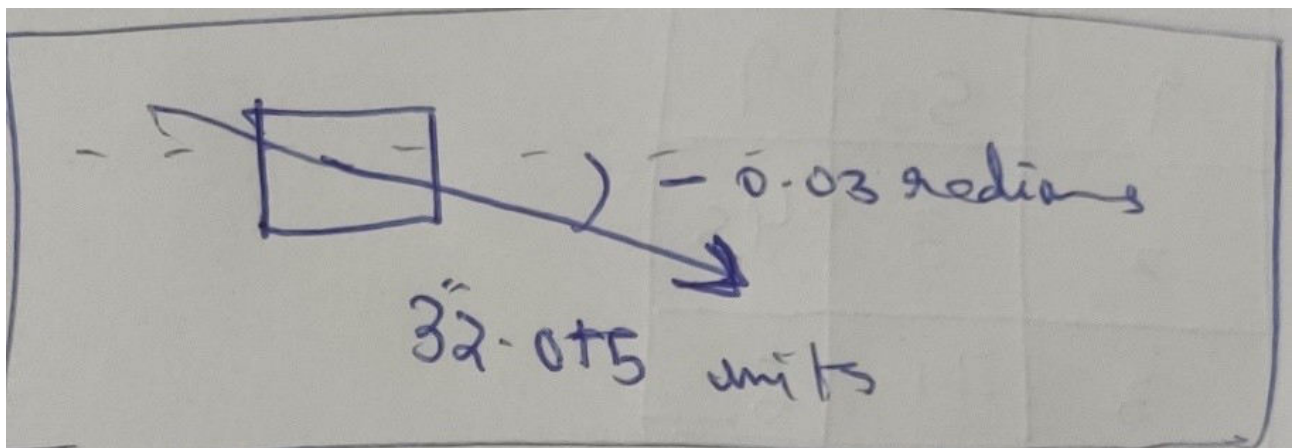 - 0.03 radians
32.015 units